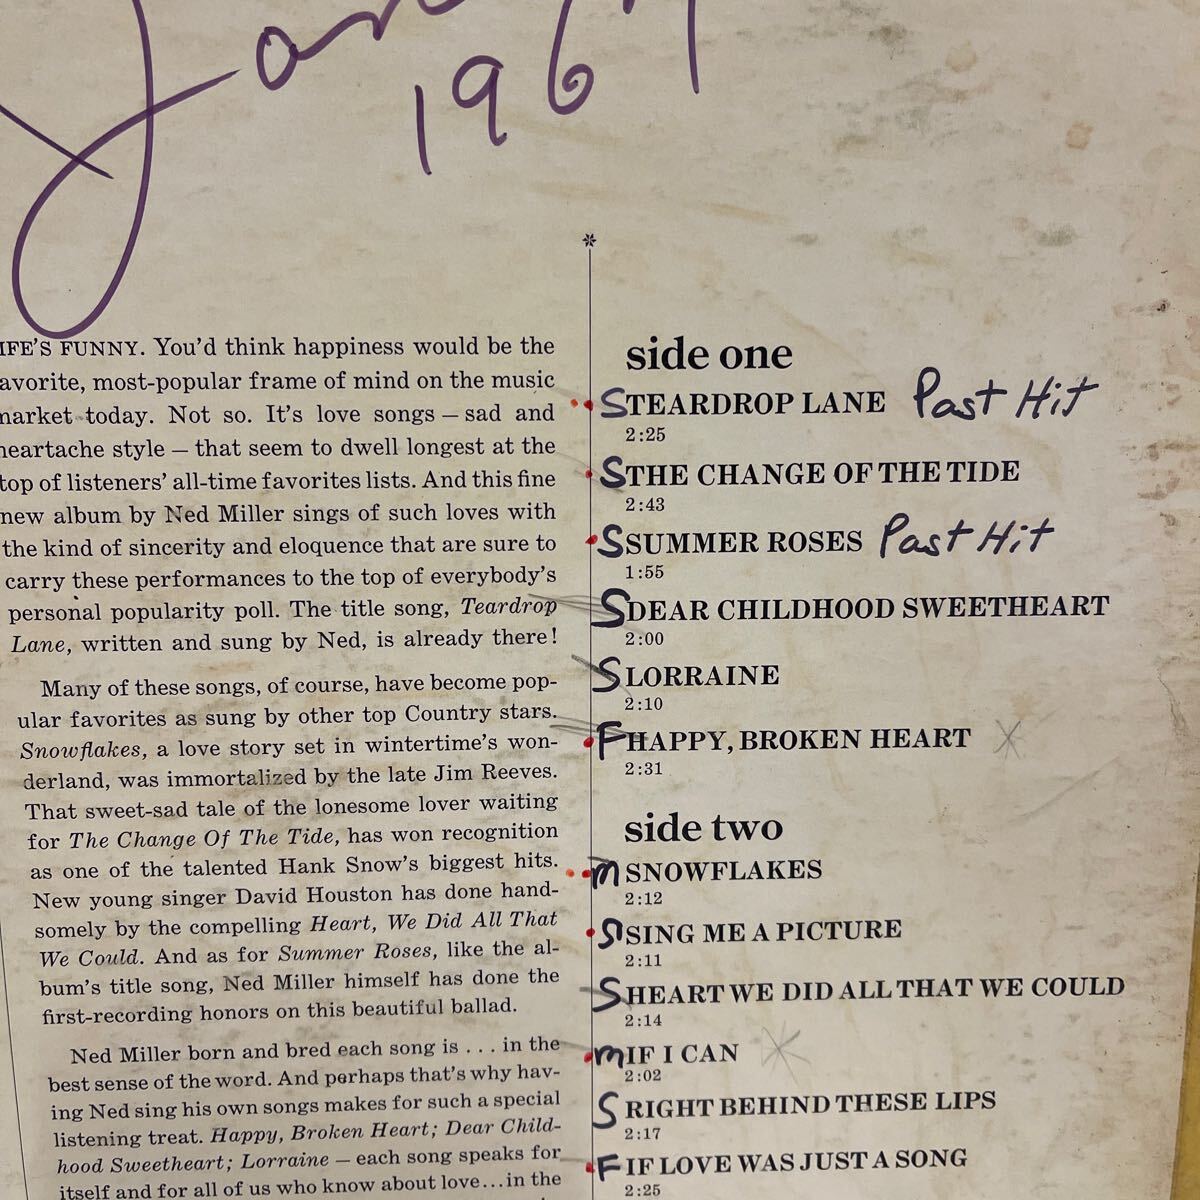 Jan
1967
IFE'S FUNNY. You'd think happiness would be the
avorite, most-popular frame of mind on the music
market today. Not so. It's love songs – sad and
heartache style – that seem to dwell longest at the
top of listeners' all-time favorites lists. And this fine
new album by Ned Miller sings of such loves with
the kind of sincerity and eloquence that are sure to
carry these performances to the top of everybody's
personal popularity poll. The title song, Teardrop
Lane, written and sung by Ned, is already there!
Many of these songs, of course, have become pop-
ular favorites as sung by other top Country stars.
Snowflakes, a love story set in wintertime's won-
derland, was immortalized by the late Jim Reeves.
That sweet-sad tale of the lonesome lover waiting
for The Change Of The Tide, has won recognition
as one of the talented Hank Snow's biggest hits.
New young singer David Houston has done hand-
somely by the compelling Heart, We Did All That
We Could. And as for Summer Roses, like the al-
bum's title song, Ned Miller himself has done the
first-recording honors on this beautiful ballad.
Ned Miller born and bred each song is . . . in the
best sense of the word. And perhaps that's why hav-
ing Ned sing his own songs makes for such a special
listening treat. Happy, Broken Heart; Dear Child-
hood Sweetheart; Lorraine – each song speaks for
itself and for all of us who know about love...in the
side one
S TEARDROP LANE Past Hit
2:25
S THE CHANGE OF THE TIDE
2:43
S SUMMER ROSES Past Hit
1:55
S DEAR CHILDHOOD SWEETHEART
2:00
S LORRAINE
2:10
F HAPPY, BROKEN HEART
2:31
side two
M SNOWFLAKES
2:12
S SING ME A PICTURE
2:11
S HEART WE DID ALL THAT WE COULD
2:14
M IF I CAN
2:02
S RIGHT BEHIND THESE LIPS
2:17
F IF LOVE WAS JUST A SONG
2:25